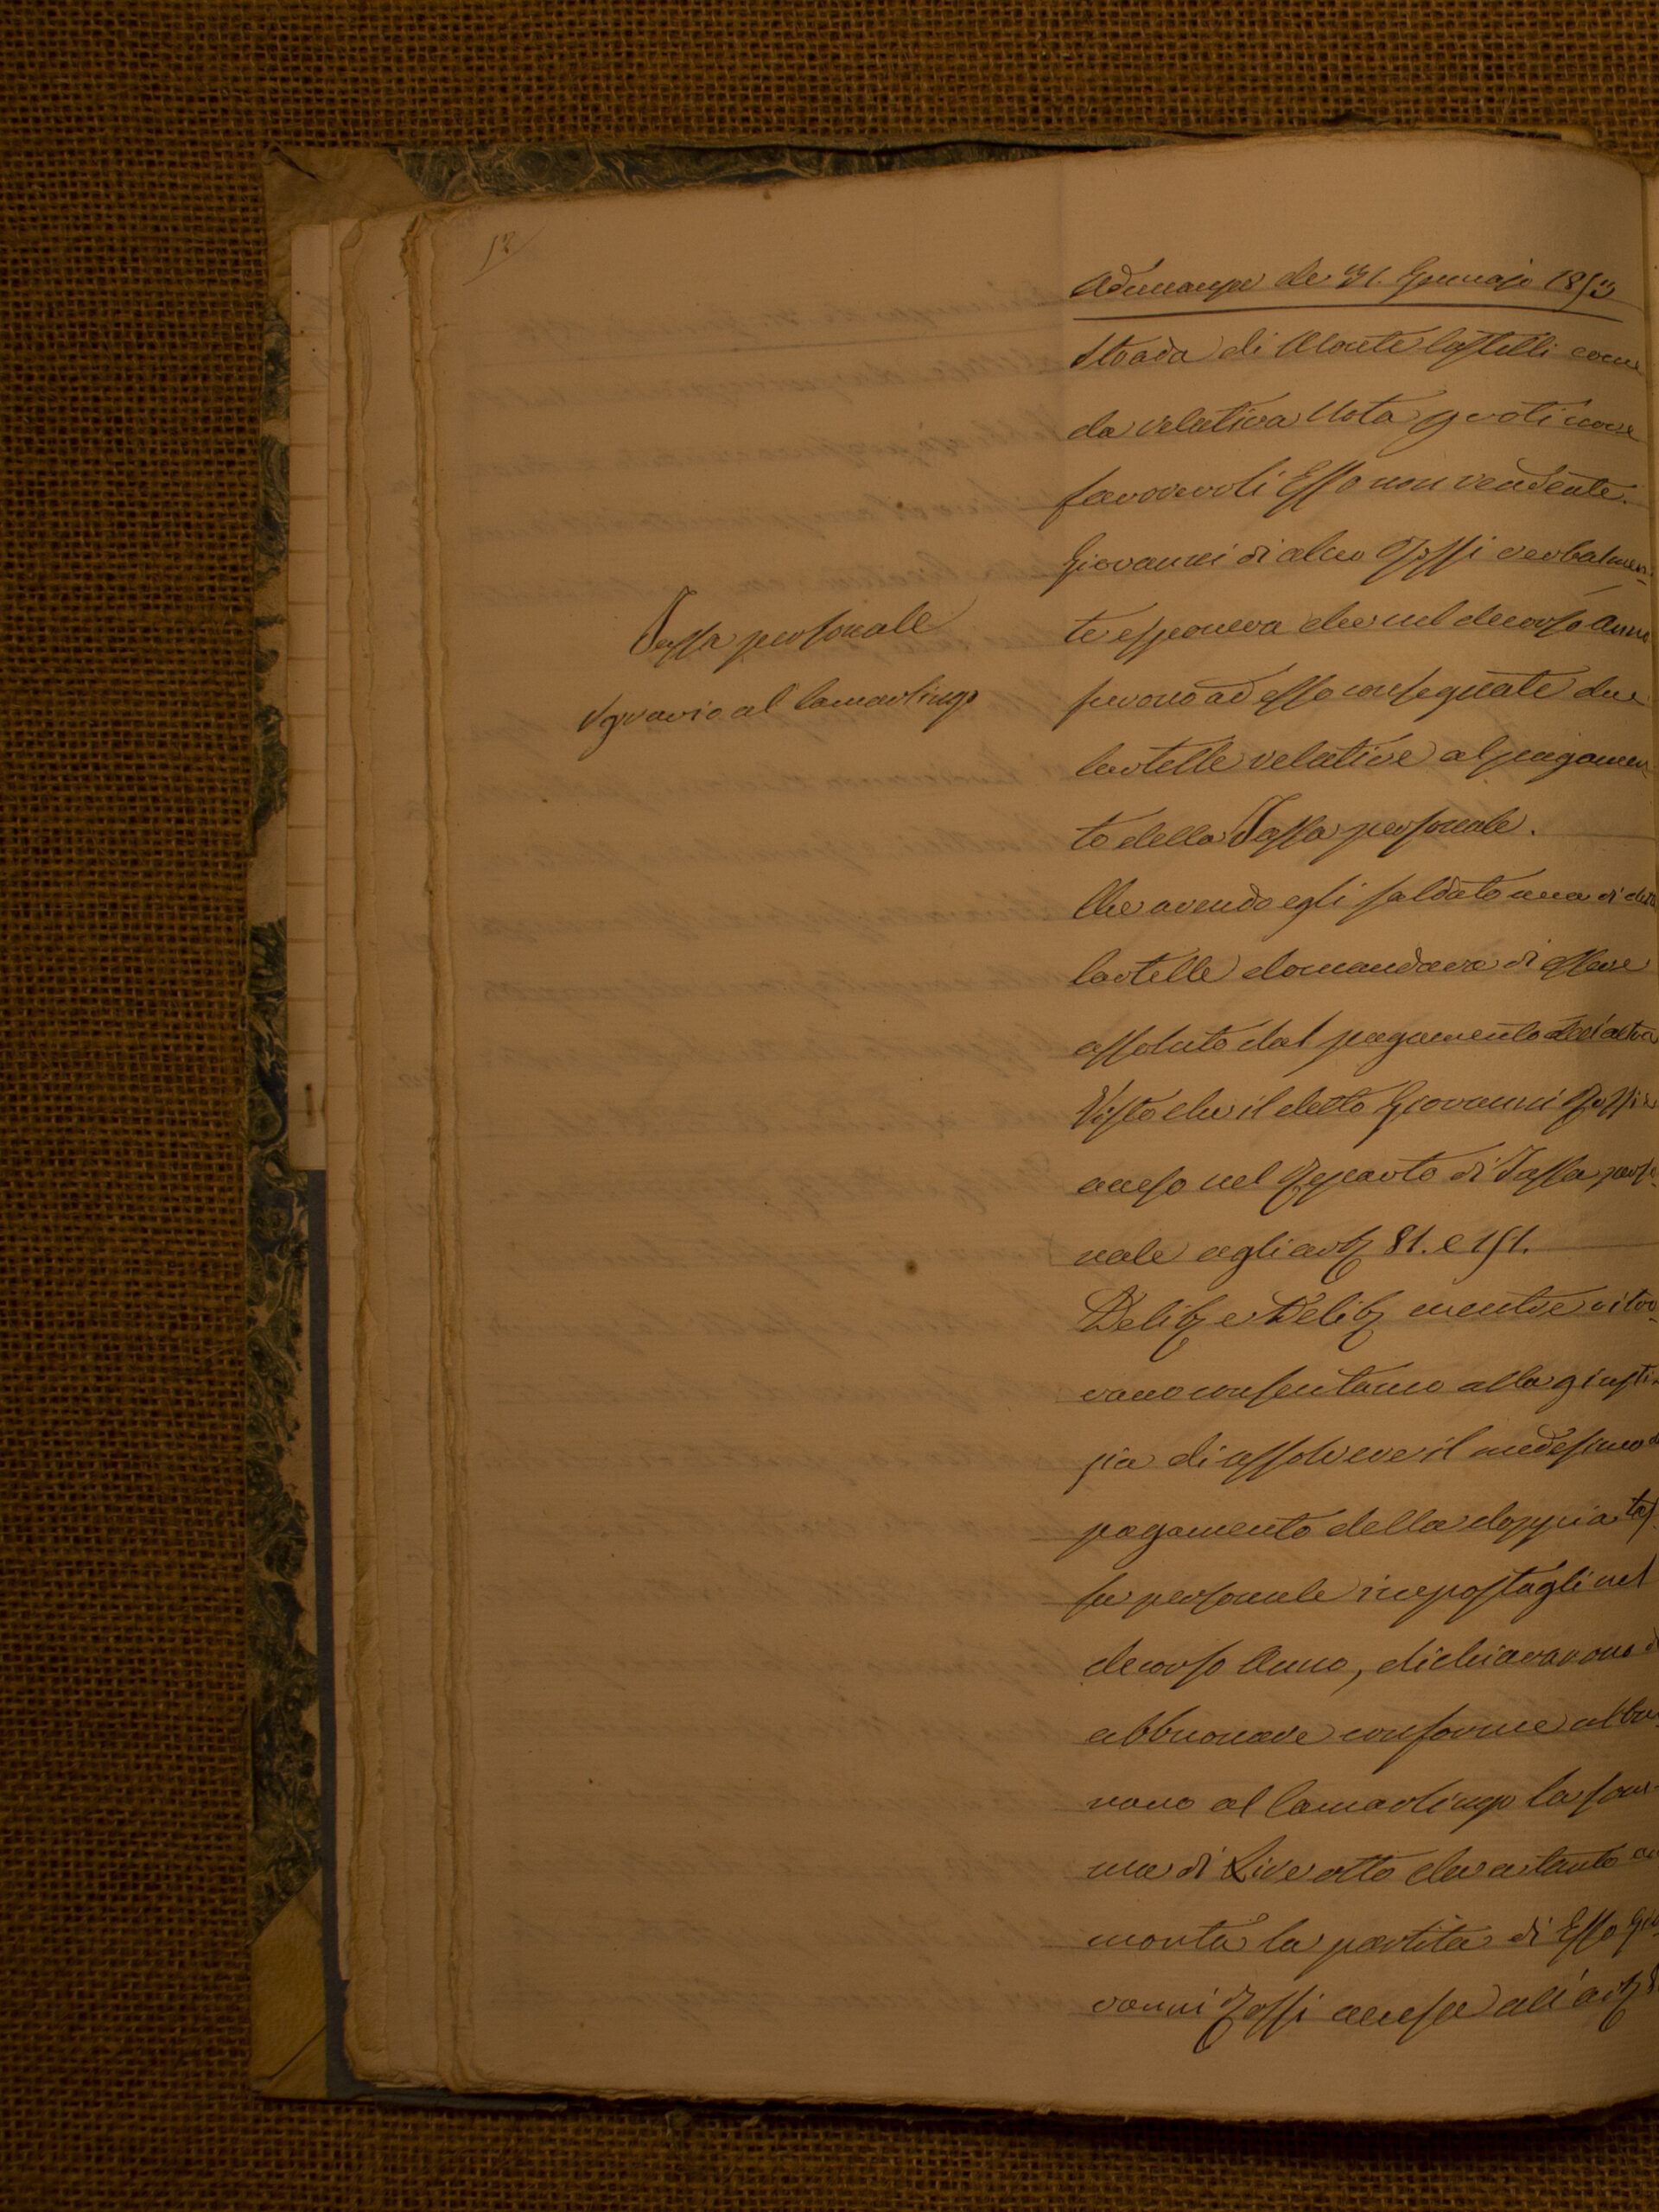 12
Adunanza de 31. Gennajo 1853
Strada di Monte Castelli come
da relativa Nota p voti nove
favorevoli Esso non vendente.
Giovanni di alceo Rossi verbalmen=
te esponeva che nel decorso Anno
furono ad esso consegnate due
Cartelle relative al pagamen
to della Tassa personale.
Tassa personale
Sgravio al Camarlingo
Che avendo egli saldato una di dette
Cartelle domandava di essere
assoluto dal pagamento dell'altra
Visto che il detto Giovanni Rossi è
acceso nel Reparto di Tassa perso=
nale agli art 81. e 151.
Delib e Delib mentre ritro=
vano consentaneo alla giusti=
zia di assolvere il medesimo
pagamento della doppia tas
sa personale impostagli nel
decorso Anno, dichiararono
abbuonare conforme abbuo
nano al Camarlingo la som
ma di Lire otto che a tanto am
monta la partita di Esso Gio=
vanni Rossi accesa all'art